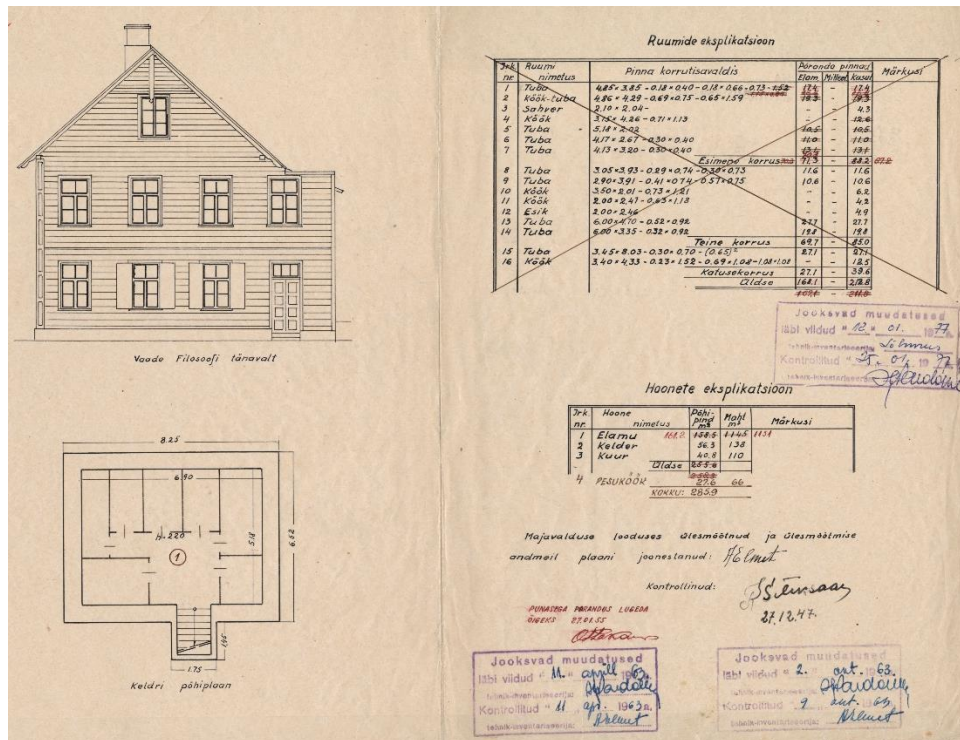 Vaade Filosoofi tänavalt
8.25
6.90
H. 220
5.18
6.52
1
1.95
1.75
Keldri põhiplaan
Ruumide eksplikatsioon
Jrk. nr. Ruumi nimetus Pinna korrutisavaldis Põranda pinnad Märkusi
Elam. Mitteel. Kasul.
1 Tuba 4.85 × 3.85 - 0.18 × 0.40 - 0.18 × 0.66 - 0.73 - 1.52 17.4 - 17.4
2 Köök-tuba 4.86 × 4.29 - 0.69 × 0.75 - 0.65 × 1.59 19.3 - 19.3
3 Sahver 2.10 × 2.04 - - - 4.3
4 Köök 3.15 × 4.26 - 0.71 × 1.13 - - 12.6
5 Tuba 5.18 × 2.02 10.5 - 10.5
6 Tuba 4.17 × 2.67 - 0.30 × 0.40 11.0 - 11.0
7 Tuba 4.13 × 3.20 - 0.30 × 0.40 13.1 - 13.1
Esimene korrus 71.3 - 88.2 87.2
8 Tuba 3.05 × 3.93 - 0.29 × 0.74 - 0.30 × 0.73 11.6 - 11.6
9 Tuba 2.90 × 3.91 - 0.41 × 0.74 - 0.57 × 0.75 10.6 - 10.6
10 Köök 3.50 × 2.01 - 0.73 × 1.21 - - 6.2
11 Köök 2.00 × 2.47 - 0.63 × 1.18 - - 4.2
12 Esik 2.00 × 2.46 - - 4.9
13 Tuba 6.00 × 4.70 - 0.52 × 0.92 27.7 - 27.7
14 Tuba 6.00 × 3.35 - 0.32 × 0.92 19.8 - 19.8
Teine korrus 69.7 - 85.0
15 Tuba 3.45 × 8.03 - 0.30 × 0.70 - (0.65)² 27.1 - 27.1
16 Köök 3.40 × 4.33 - 0.23 × 1.52 - 0.69 × 1.08 - 1.08 × 1.08 - - 12.5
Katusekorrus 27.1 - 39.6
Üldse 168.1 - 212.8
Jooksvad muudatused
läbi viidud " 12 " 01. 1977a.
tehnik-inventariseerija
Kontrollitud " 25. " 01. 1977a.
tehnik-inventariseerija
Hoonete eksplikatsioon
Jrk. nr. Hoone nimetus Põhipind m² Maht m³ Märkusi
1 Elamu 158.5 1145 1131
2 Kelder 56.3 138
3 Kuur 40.8 110
Üldse 255.6
4 PESUKÖÖK 27.6 66
KOKKU: 285.9
Majavalduse looduses ülesmõõtnud ja ülesmõõtmise
andmeil plaani joonestanud: AElmet
Kontrollinud:
27.12.47.
PUNASEGA PARANDUS LUGEDA
ÕIGEKS 27.01.55
Jooksvad muudatused
läbi viidud " 11. " aprill 1963a.
tehnik-inventariseerija:
Kontrollitud " 11 " apr. 1963a.
tehnik-inventariseerija:
Jooksvad muudatused
läbi viidud " 2. " okt. 1963.
tehnik-inventariseerija:
Kontrollitud " 9 " okt. 1963.
tehnik-inventariseerija: